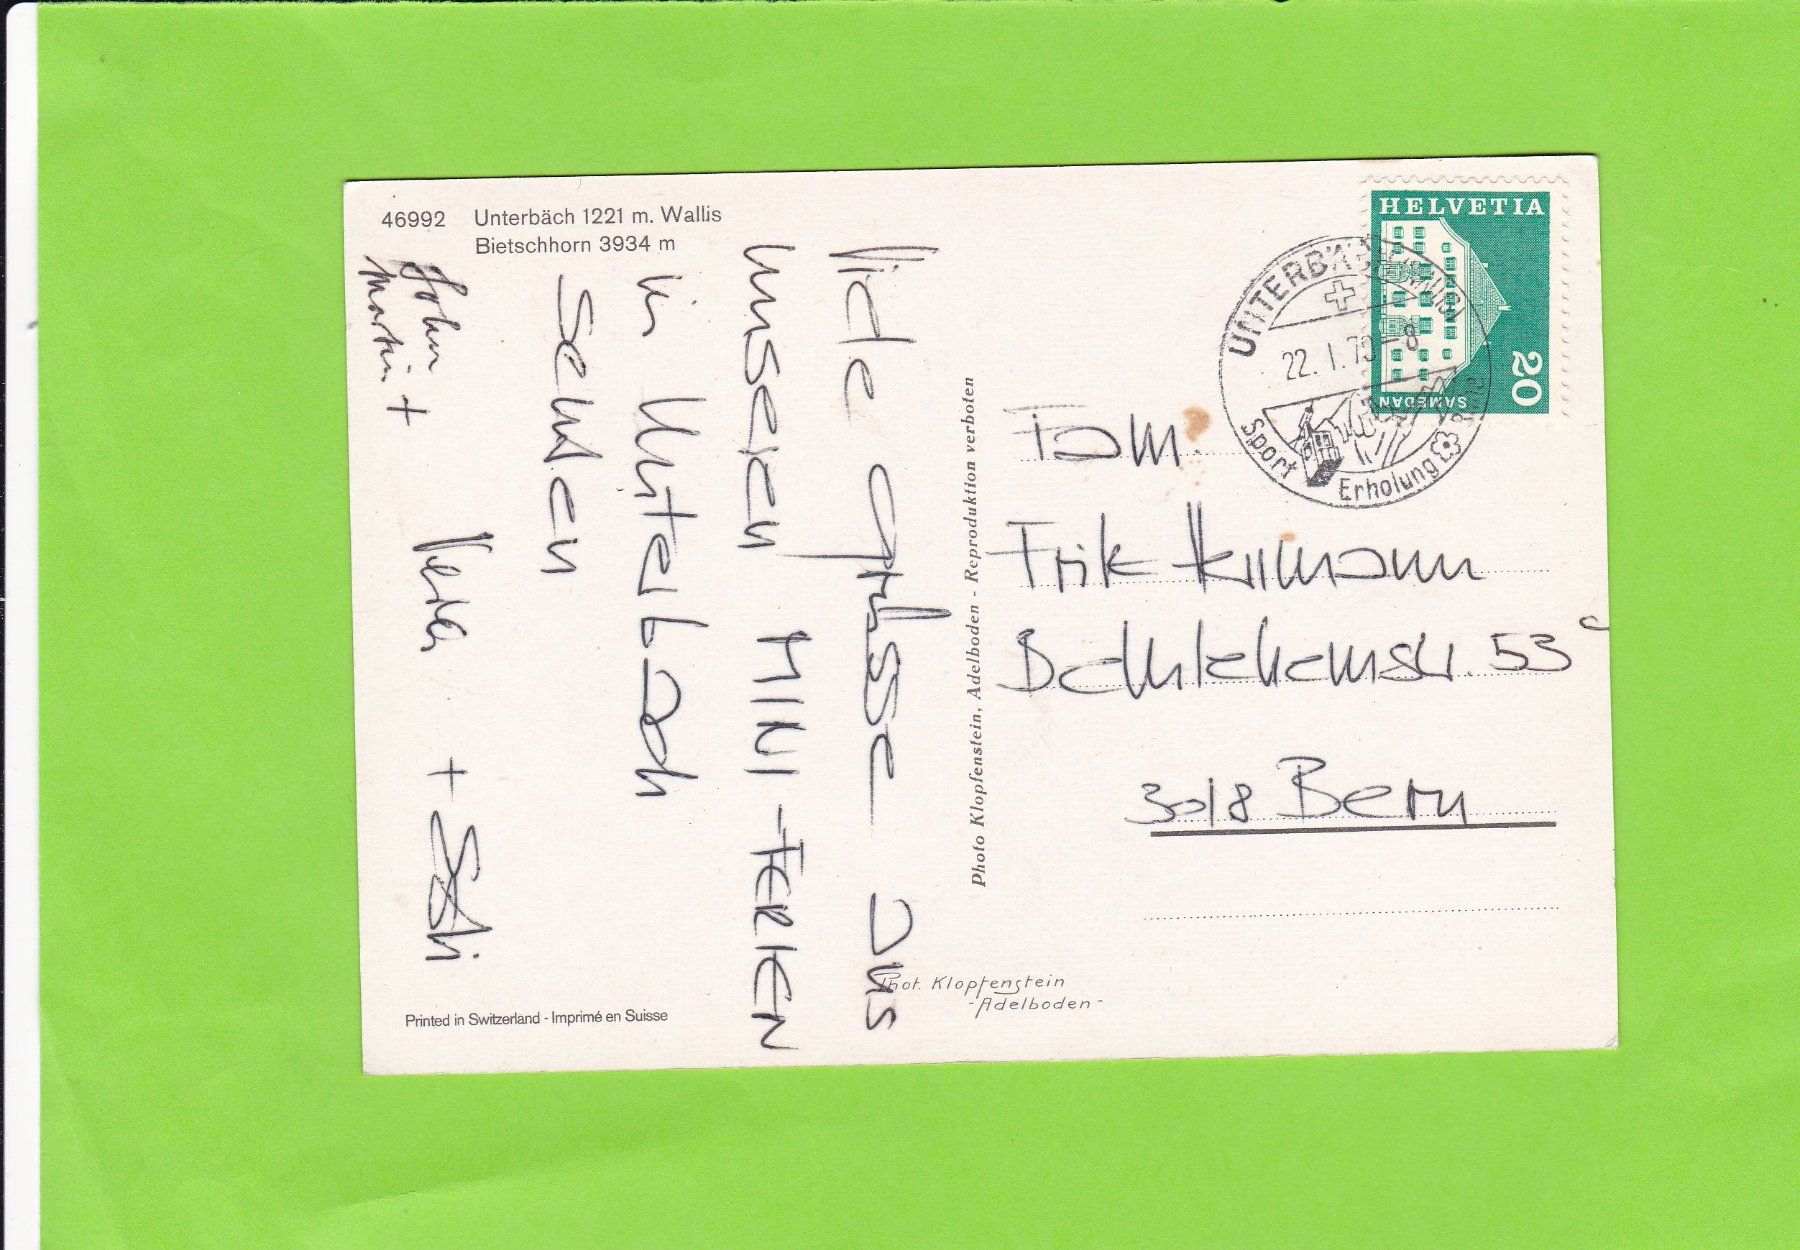 46992 Unterbäch 1221 m. Wallis
Bietschhorn 3934 m
Viele Grüsse aus
unseren MINI-FERIEN
in Unterbäch
senden
Vera + 
John
Martin +
Printed in Switzerland - Imprimé en Suisse
Photo Klopfenstein, Adelboden - Reproduktion verboten
Phot. Klopfenstein
-Adelboden-
HELVETIA
20
SAMEDAN
UNTERBÄCH (WALLIS)
22. I. 70 - 8
Sport Erholung
Fam.
Frik Hermann
Bethlehemstr. 53c
3018 Bern